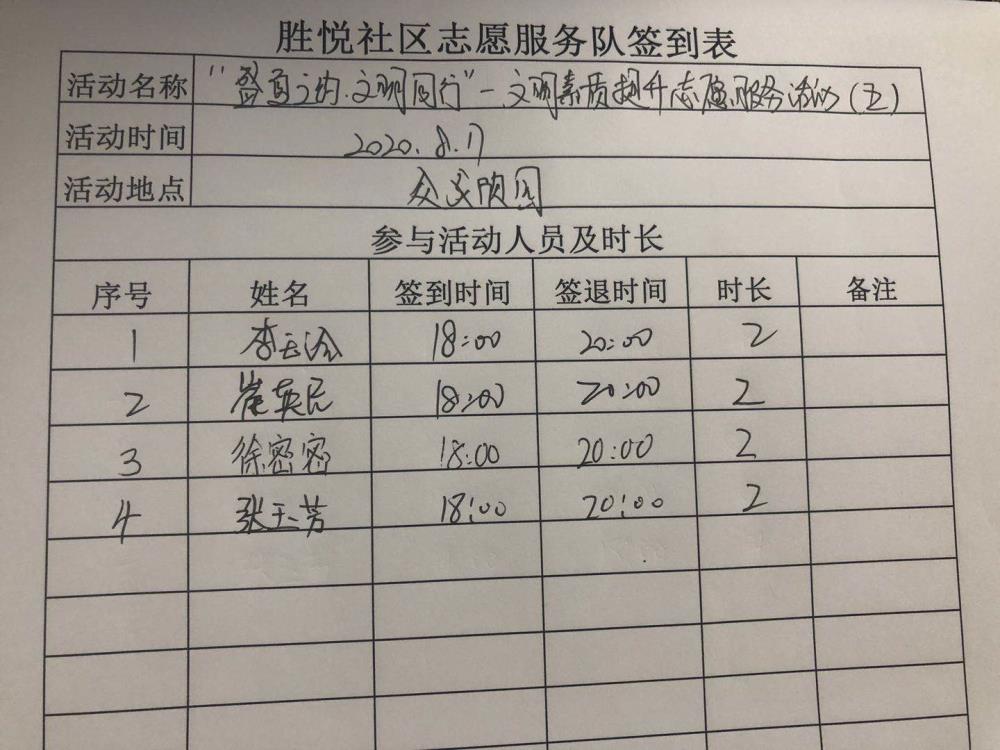 胜悦社区志愿服务队签到表
活动名称 "盛夏之约·文明同行"-文明素质提升志愿服务活动(五)
活动时间 2020.8.17
活动地点 众成欣园
参与活动人员及时长
序号 姓名 签到时间 签退时间 时长 备注
1 李玉 18:00 20:00 2
2 崔英民 18:00 20:00 2
3 徐密密 18:00 20:00 2
4 张玉芳 18:00 20:00 2